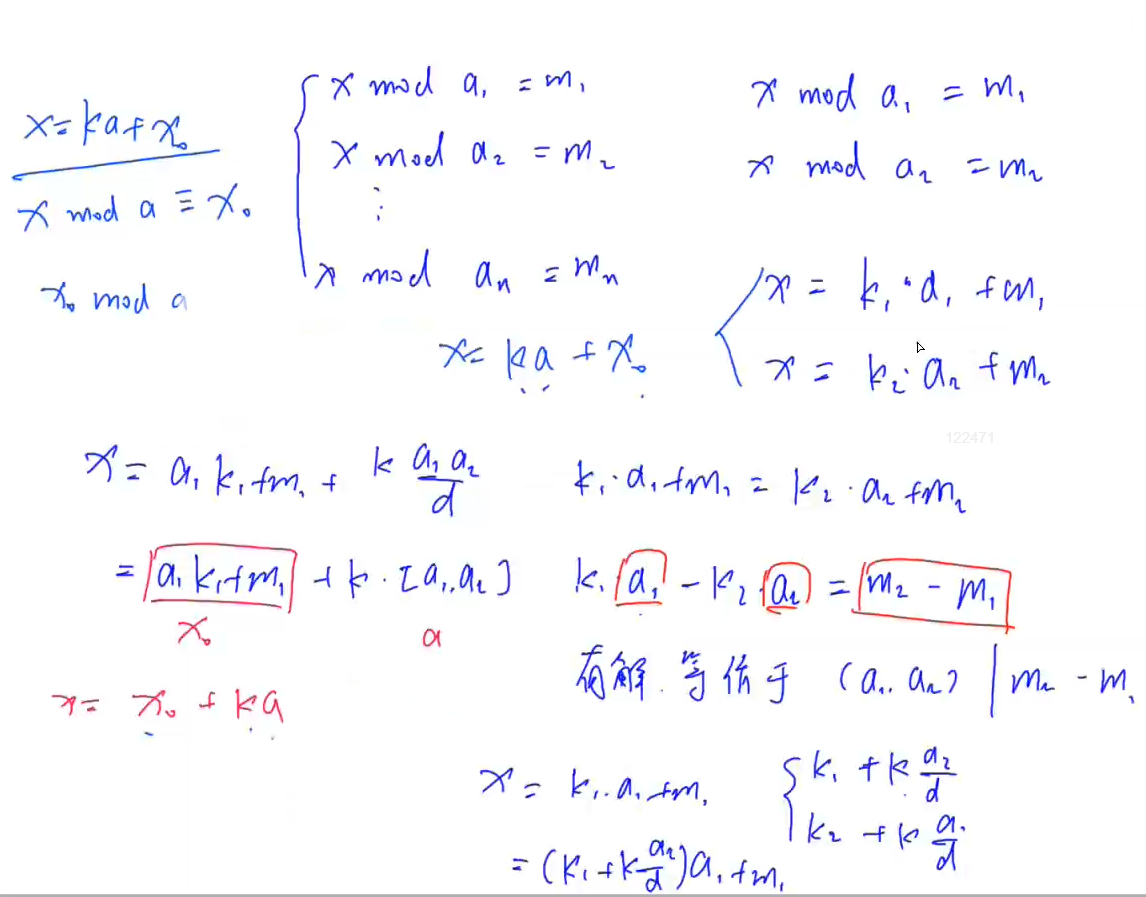 x = ka + x₀
x mod a ≡ x₀
x₀ mod a
x mod a₁ = m₁
x mod a₂ = m₂
⋮
x mod aₙ = mₙ
x = ka + x₀
x mod a₁ = m₁
x mod a₂ = m₂
x = k₁·a₁ + m₁
x = k₂·a₂ + m₂
122471
x = a₁k₁ + m₁ + k a₁a₂/d
= a₁k₁ + m₁ + k·[a₁,a₂]
x₀ a
x = x₀ + ka
k₁·a₁ + m₁ = k₂·a₂ + m₂
k₁·a₁ - k₂·a₂ = m₂ - m₁
有解 等价于 (a₁,a₂) | m₂ - m₁
x = k₁·a₁ + m₁
= (k₁ + k a₂/d)a₁ + m₁
k₁ + k a₂/d
k₂ + k a₁/d